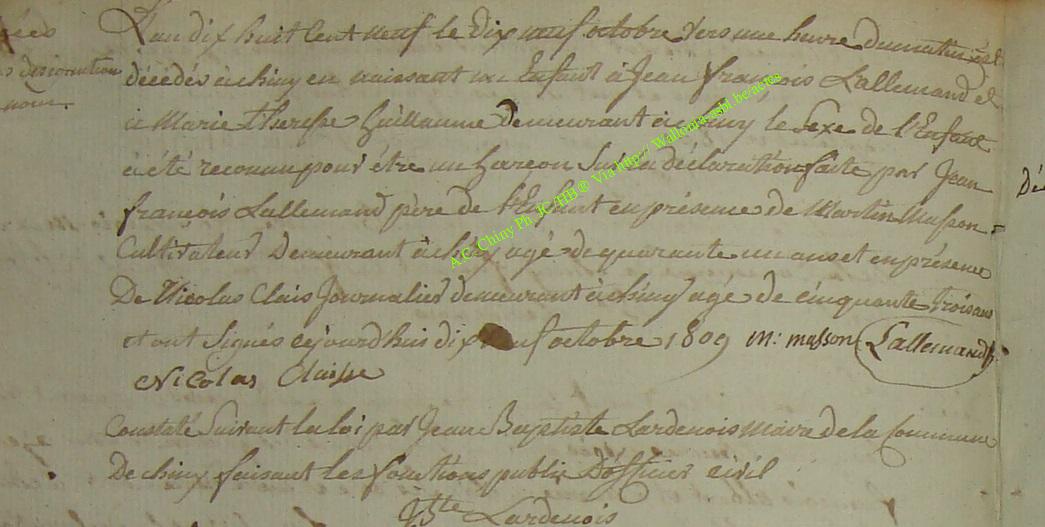 L'an dix huit Cent neuf le Dix neuf octobre vers une heure du matin est
décédé à chiny en naissant un Enfant à Jean françois Lallemand et
à Marie therese Guillaume Demeurant à chiny le Sexe de l'Enfant
à été reconnu pour être un Garcon Sur la déclaration faite par Jean
françois Lallemand père de l'Enfant en présence de Martin Masson
Cultivateur Demeurant à chiny agé de quarante un ans et en présence
De Nicolas Clais Journalier demeurant à chiny agé de cinquante trois ans
et ont Signés cejourd'huis dix neuf octobre 1809 M: masson Lallemand
Nicolas Claisse
Constaté Suivant la loi par Jean Baptiste Lardenois maire de la Commune
De chiny faisant les fonctions public D'officier civil
Lardenois
nom
Dé
A.C. Chiny Ph. JC-HB ® Via http:// Wallonia-asbl.be/actes